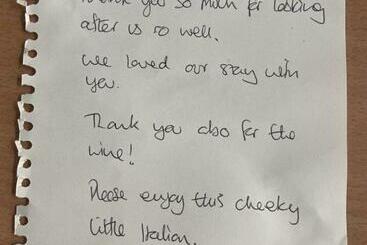 Thank you so much for looking
after us so well.
We loved our stay with
you.
Thank you also for the
wine!
Please enjoy this cheeky
little Italian.